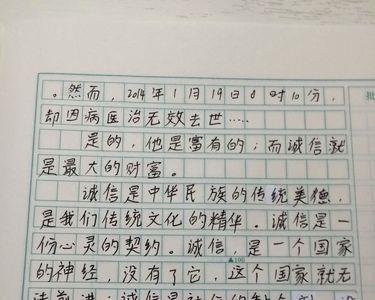 。然而，2014年1月19日8时10分，
却因病医治无效去世……
是的，他是富有的；而诚信就
是最大的财富。
诚信是中华民族的传统美德，
是我们传统文化的精华。诚信是一
份心灵的契约。诚信，是一个国家
▲100
的神经，没有了它，这个国家就无
法前进；诚信是
批